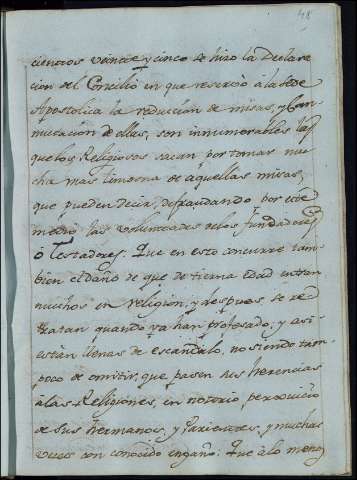 48
cientos veinte y cinco se hizo la Declara
cion del Concilio en que reservò à la Sede
Apostolica la reduccion de misas, y Com
mutacion de ellas, son innumerables las
que los Religiosos sacan por tomar mu
cha mas limosna de aquellas misas,
que pueden decir, defraudando por este
medio las voluntades de los fundadores
ò Testadores. Que en esto concurre tam
bien el daño de que de tierna edad entran
muchos en religion, y despues se re
tratan quando ya han profesado; y asi
estàn llenas de escandalo, no siendo tam
poco de omitir, que pasen sus herencias
à las Religiones, en notorio perjuicio
de sus hermanos, y Parientes, y muchas
veces con conocido engaño. Que à lo menos